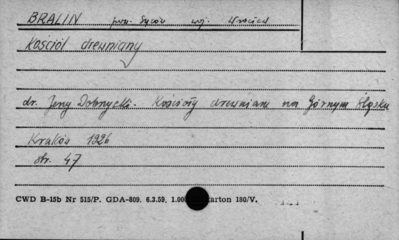 BRALIN pow. Syców woj. Wrocław
Kościół drewniany
dr. Jerzy Dobrzycki. Kościoły drewniane na Górnym Śląsku
Kraków 1926
str. 47
CWD B-15b Nr 515/P. GDA-609. 6.3.59. karton 180/V.